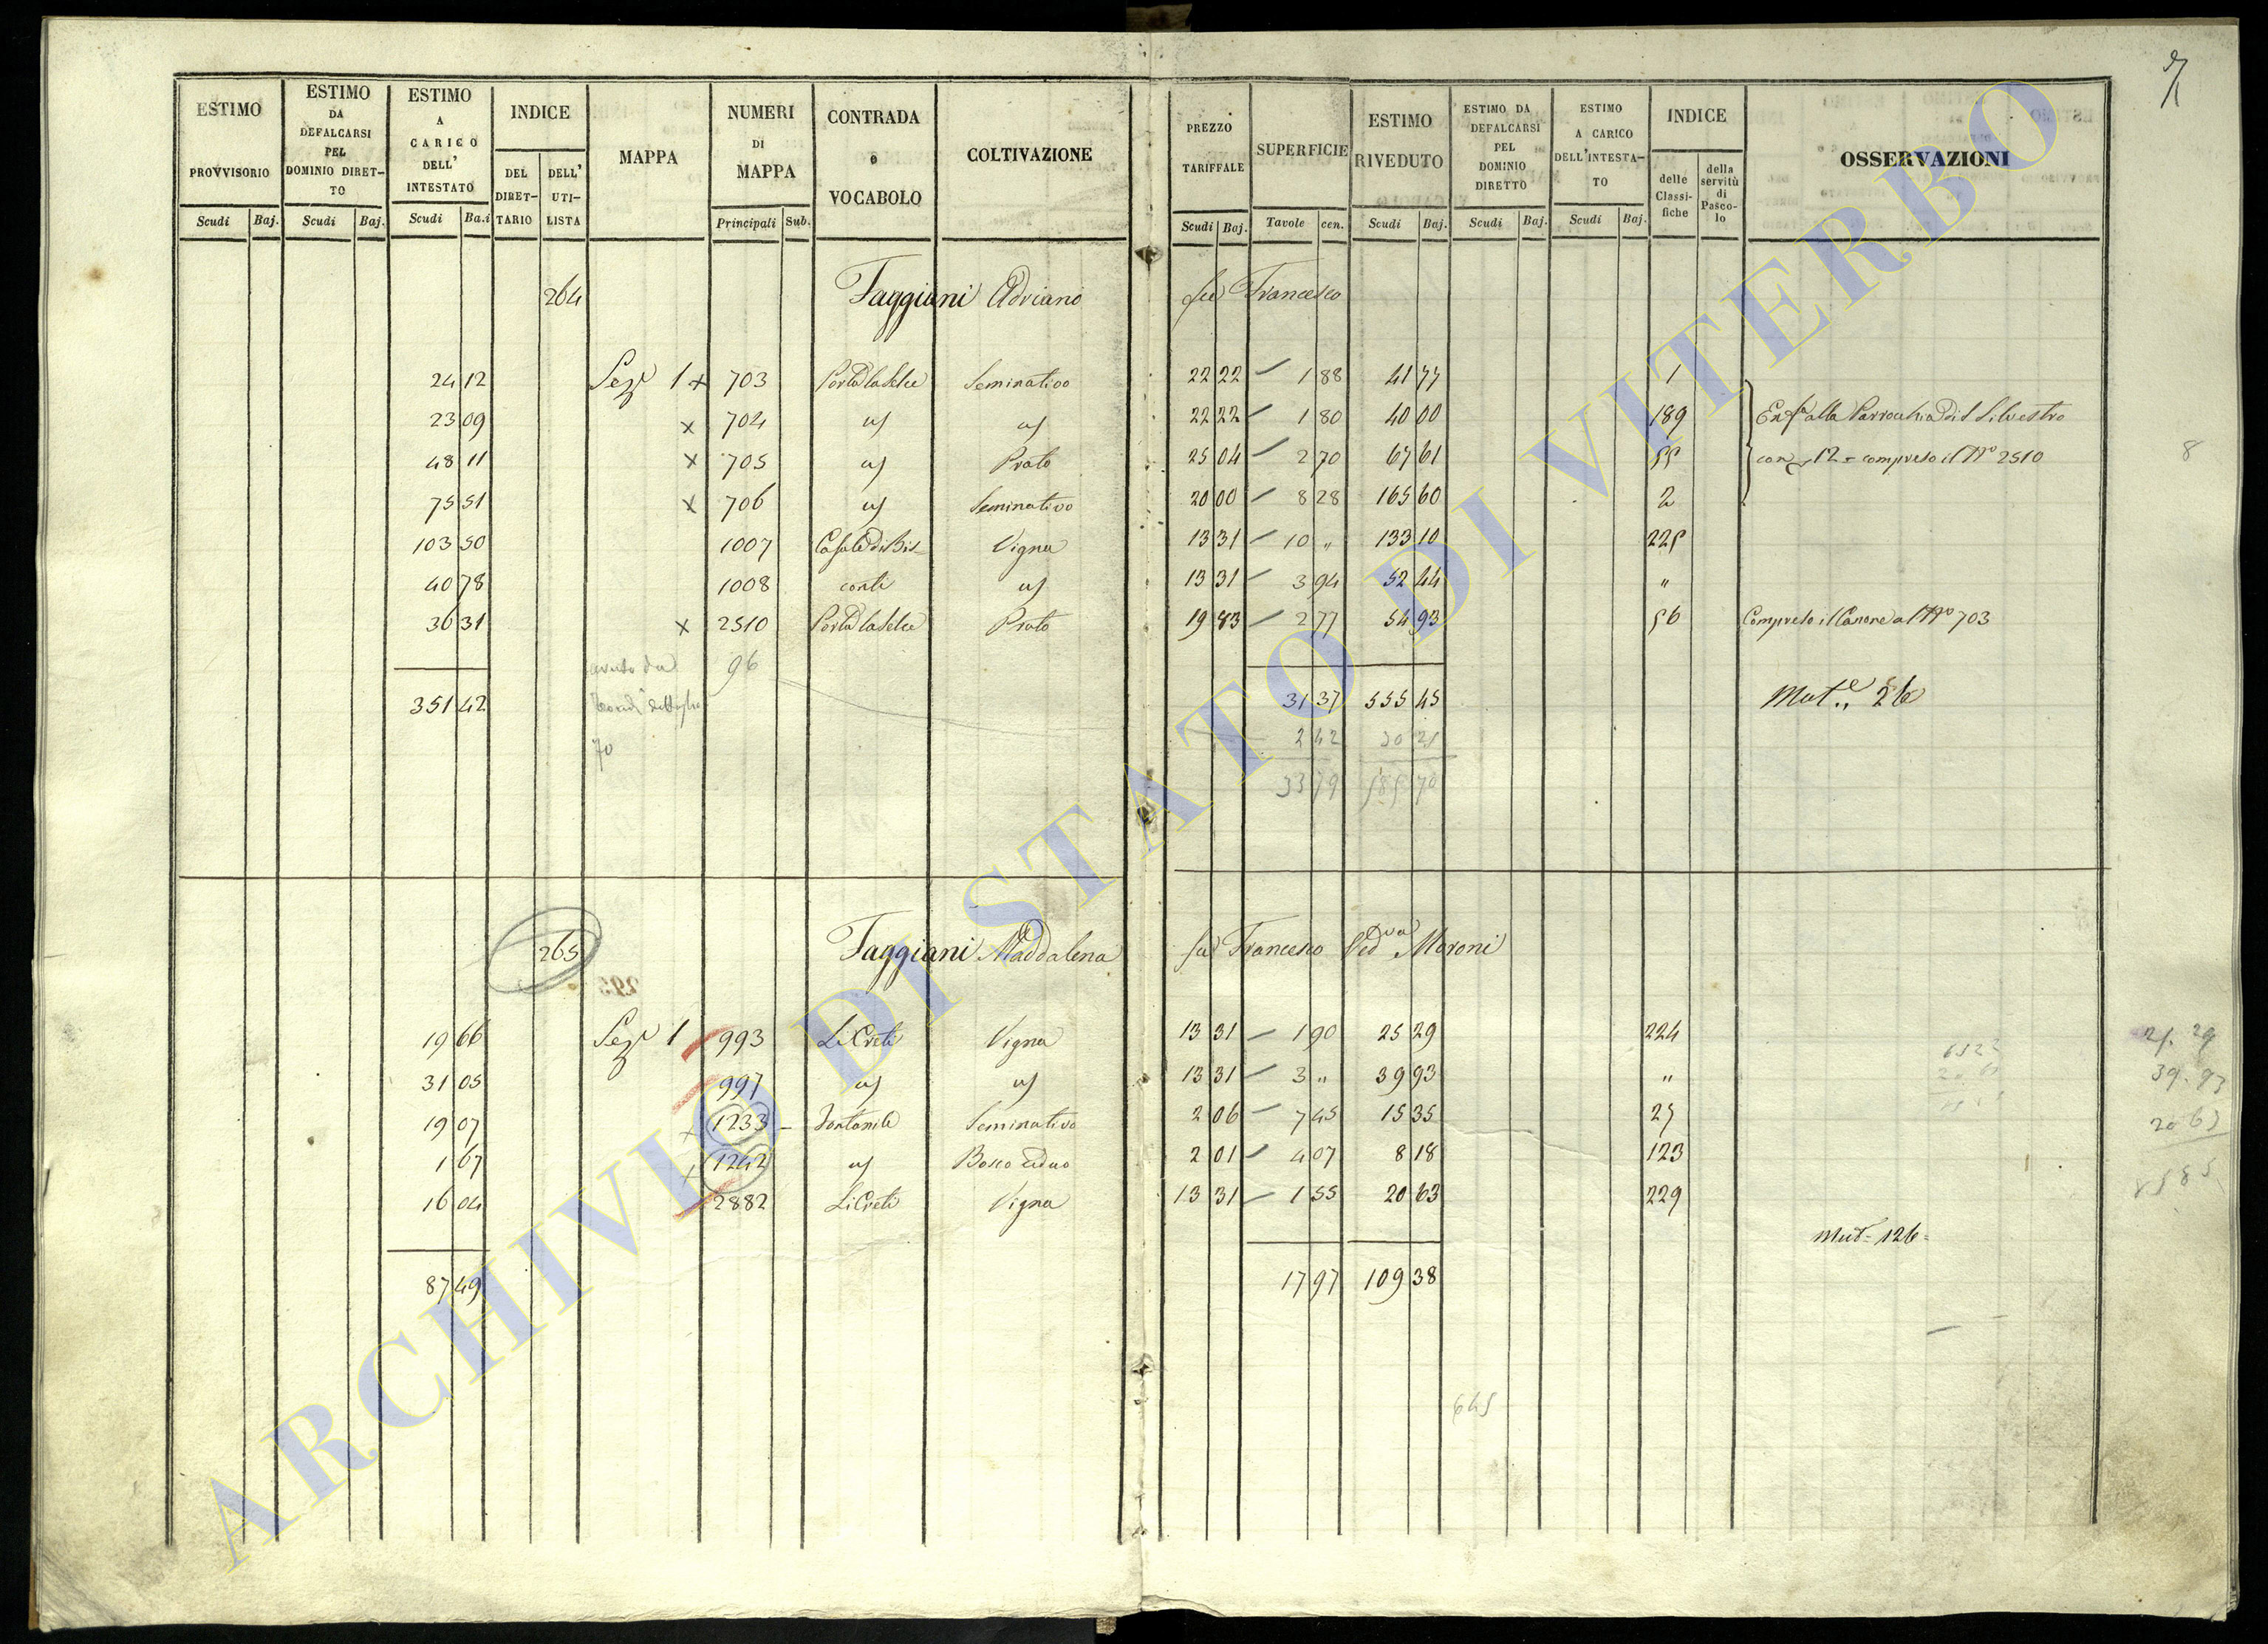 ESTIMO PROVVISORIO Scudi Baj.
ESTIMO DA DEFALCARSI PEL DOMINIO DIRETTO Scudi Baj.
ESTIMO A CARICO DELL' INTESTATO Scudi Ba.i
INDICE DEL DIRETTARIO DELL' UTILISTA
MAPPA
NUMERI DI MAPPA Principali Sub.
CONTRADA o VOCABOLO
COLTIVAZIONE
PREZZO TARIFFALE Scudi Baj.
SUPERFICIE Tavole cen.
ESTIMO RIVEDUTO Scudi Baj.
ESTIMO DA DEFALCARSI PEL DOMINIO DIRETTO Scudi Baj.
ESTIMO A CARICO DELL'INTESTATO Scudi Baj.
INDICE delle Classifiche della servitù di Pascolo
OSSERVAZIONI
264 Faggiani Adriano fu Francesco
24 12 Sez.e 1 x 703 Porta la Selce Seminativo 22 22 1 88 41 77 1
23 09 x 704 id id 22 22 1 80 40 00 189 Enf.a alla Parrocchia di S. Silvestro
48 11 x 705 id Prato 25 04 2 70 67 61 55 con 12 = compreso il N.o 2510
75 51 x 706 id Seminativo 20 00 8 28 165 60 2
103 50 1007 Casale di Bis Vigna 13 31 10 " 133 10 225
40 78 1008 conti id 13 31 3 94 52 44 "
36 31 x 2510 Porta la Selce Prato 19 83 2 77 54 93 56 Compreso il Canone al N.o 703
avuto da 96
351 42 31 37 555 45 Mut.e 26
70 2 42 30 21
33 79 585 70
265 Faggiani Maddalena fu Francesco Ved.va Moroni
19 66 Sez.e 1 993 Li Creti Vigna 13 31 1 90 25 29 224
31 05 997 id id 13 31 3 " 39 93 "
19 07 x 1233 Fontanile Seminativo 2 06 7 45 15 35 27
1 67 x 1242 id Bosco ceduo 2 01 4 07 8 18 123
16 04 2882 Li Creti Vigna 13 31 1 55 20 63 229
Mut= 126=
87 49 17 97 109 38
8
25. 29
39. 93
20 63
645
ARCHIVIO DI STATO DI VITERBO